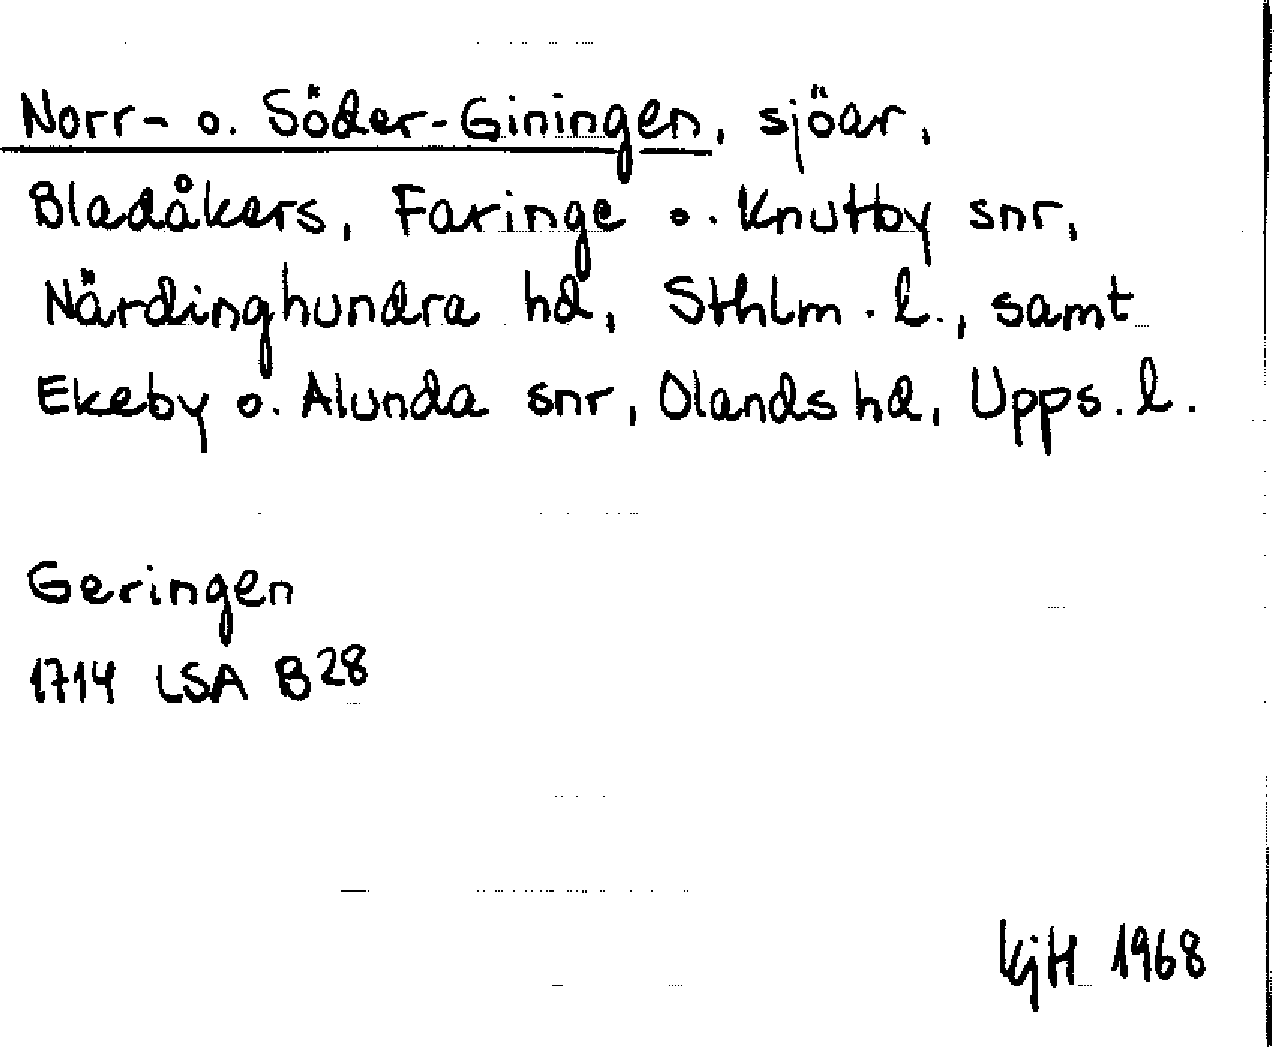 Norr- o. Söder-Giningen, sjöar,
Bladåkers, Faringe o. Knutby snr,
Närdinghundra hd, Sthlm. l., samt
Ekeby o. Alunda snr, Olands hd, Upps. l.
Geringen
1714 LSA B 28
KjH 1968